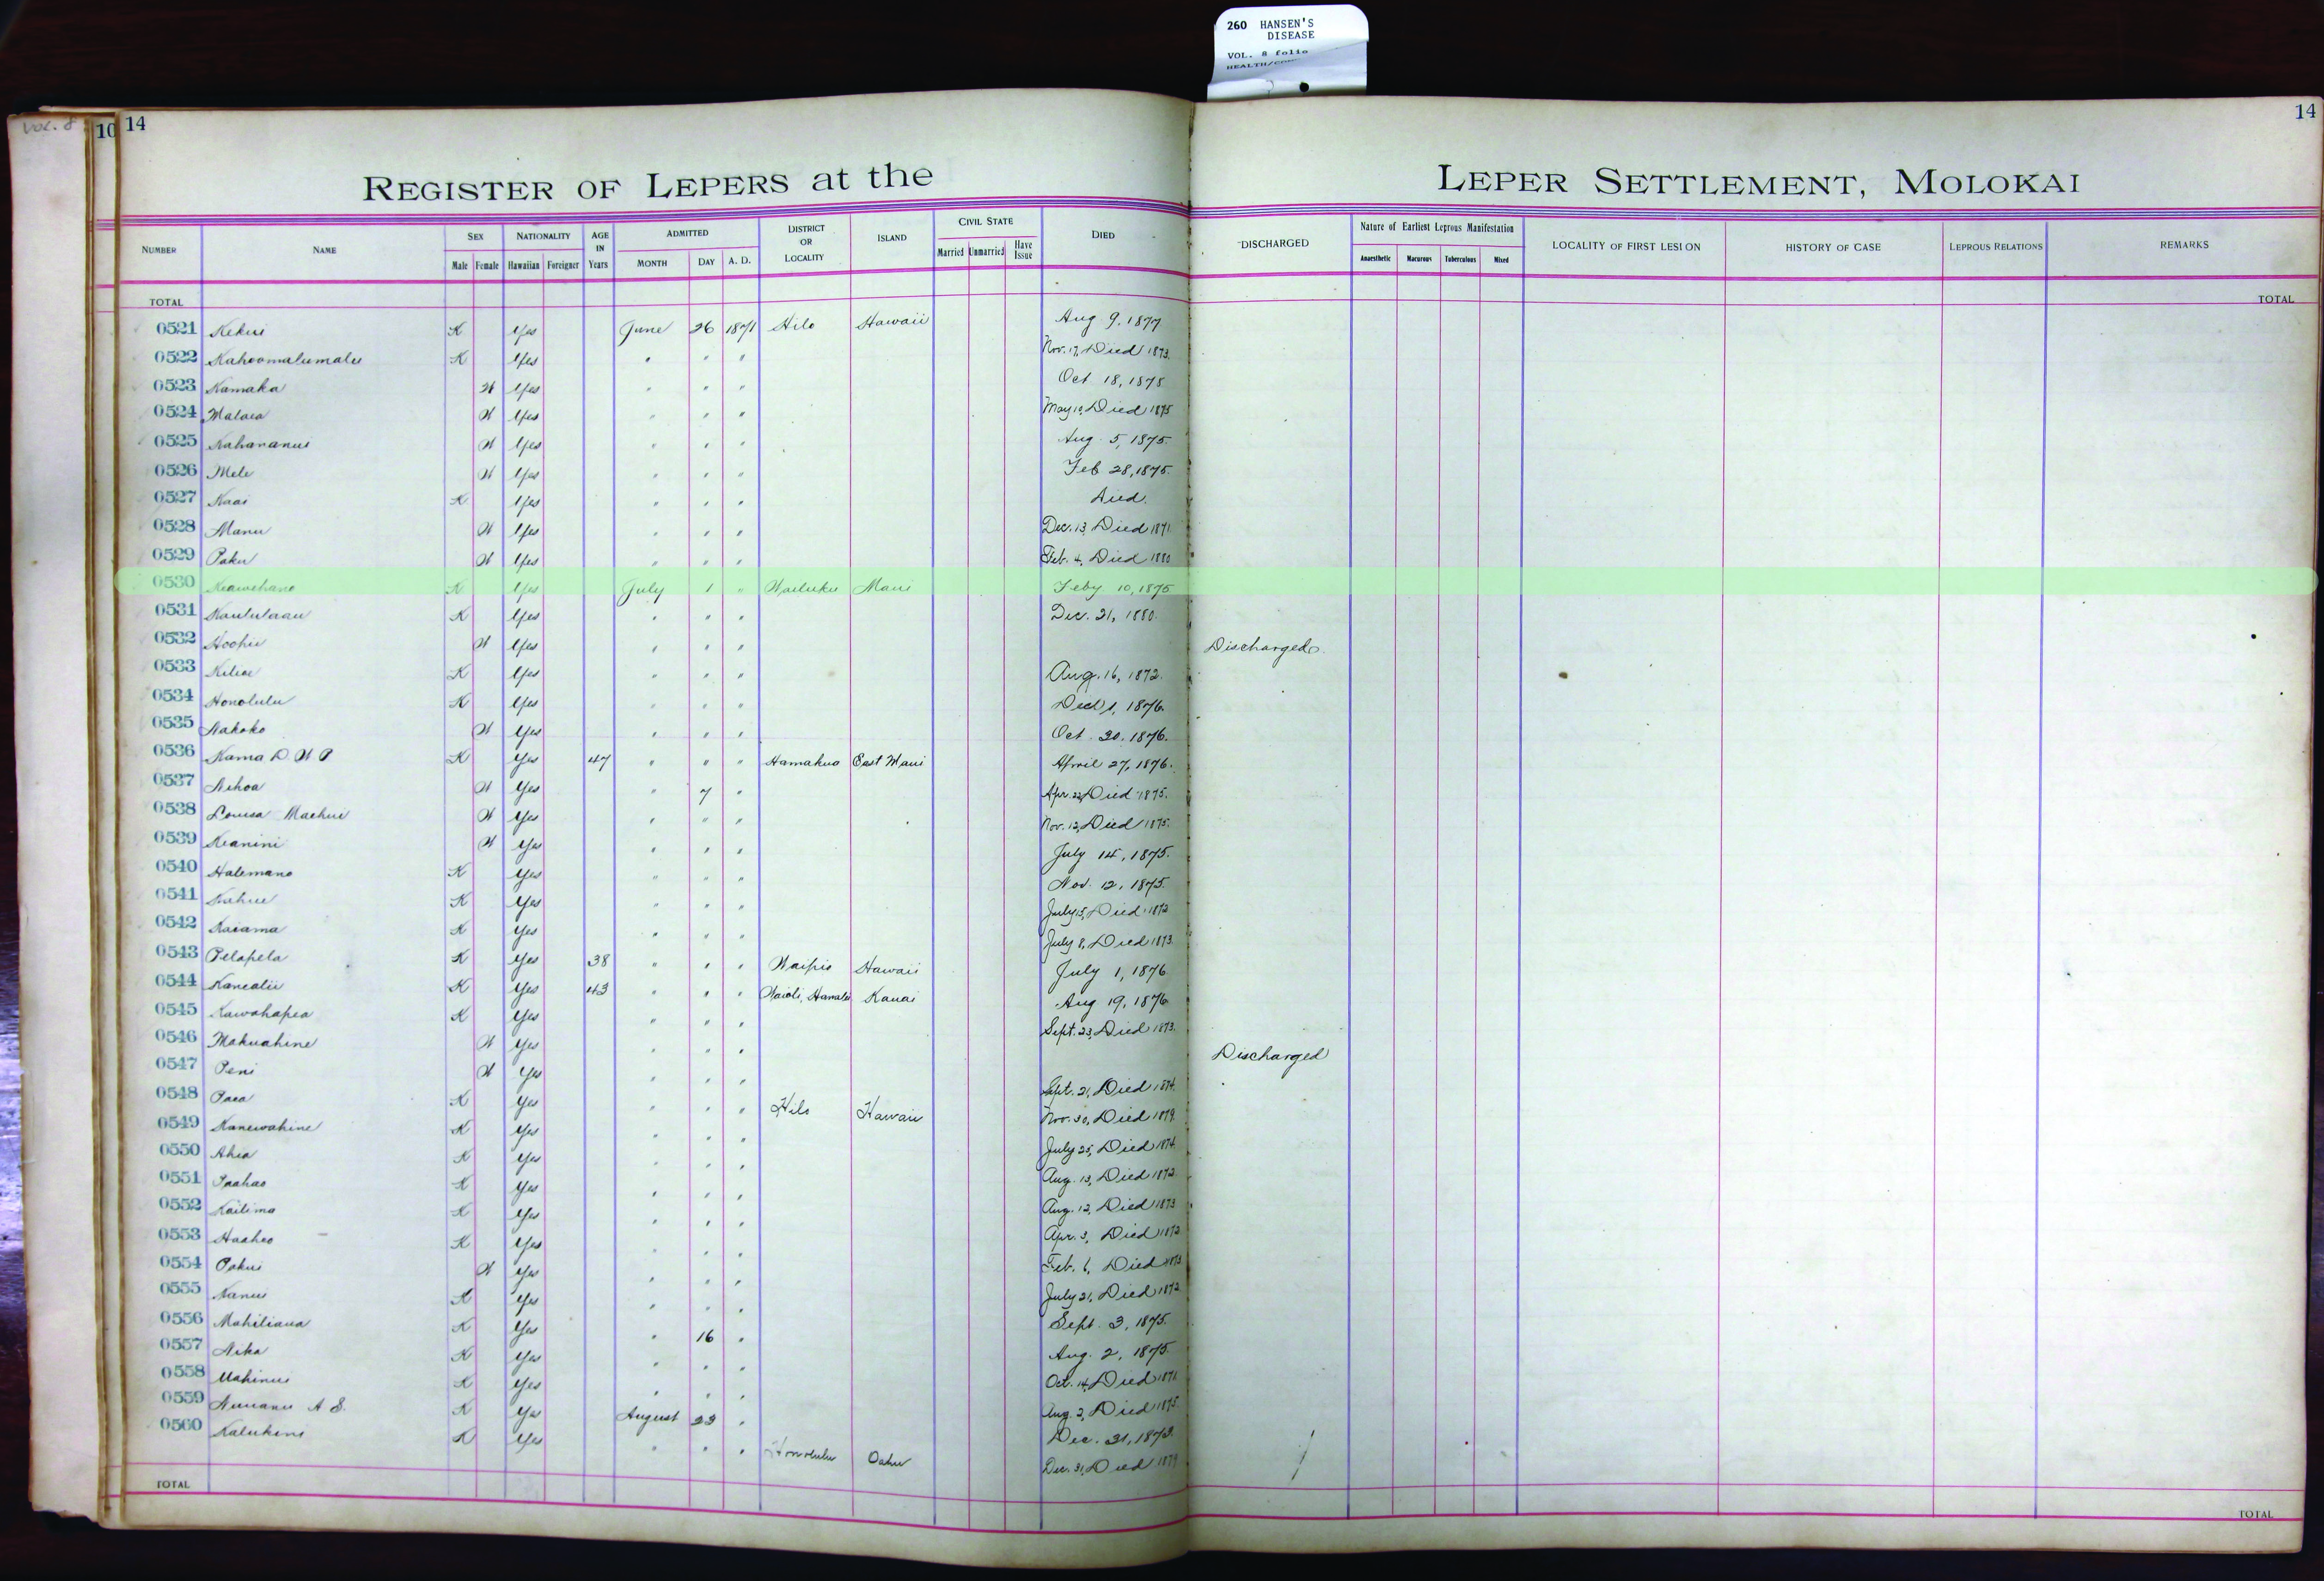 260 HANSEN'S
DISEASE
VOL. 8 folio
VOL. 8
10 14
14
REGISTER OF LEPERS at the LEPER SETTLEMENT, MOLOKAI
NUMBER NAME SEX NATIONALITY AGE IN Years ADMITTED DISTRICT OR LOCALITY ISLAND CIVIL STATE DIED DISCHARGED Nature of Earliest Leprous Manifestation LOCALITY OF FIRST LESION HISTORY OF CASE LEPROUS RELATIONS REMARKS
Male Female Hawaiian Foreigner MONTH DAY A. D. Married Unmarried Have Issue Anaesthetic Macurous Tuberculous Mixed
TOTAL TOTAL
0521 Kekui K Yes June 26 1871 Hilo Hawaii Aug 9, 1877
0522 Kahoomalumalu K Yes " " " Nov. 17, Died 1873.
0523 Kamaka W Yes " " " Oct 18, 1875
0524 Malaea W Yes " " " May 10, Died 1875
0525 Kahananui W Yes " " " Aug. 5, 1875.
0526 Mele W Yes " " " Feb 28, 1875.
0527 Kaai K Yes " " " Died.
0528 Manu W Yes " " " Dec. 13, Died 1871
0529 Paku W Yes " " " Feb. 4, Died 1880
0530 Keawehano K Yes July 1 " Wailuku Maui Feby 10, 1875
0531 Kaululaau K Yes " " " Dec. 21, 1880.
0532 Hoohii W Yes " " " Discharged.
0533 Kiliae K Yes " " " Aug. 16, 1872.
0534 Honolulu K Yes " " " 1, 1876.
0535 Nakoko W Yes " " " Oct. 20, 1876.
0536 Kama D. W P K Yes 47 " " " Hamakua East Maui April 27, 1876.
0537 Nihoa W Yes " 7 " Apr. 22, Died 1875.
0538 Louisa Maehui W Yes " " " Nov. 12, Died 1875.
0539 Keanini W Yes " " " July 14, 1875.
0540 Halemano K Yes " " " Nov. 12, 1875.
0541 Kahue K Yes " " " July 15, Died 1872
0542 Kaiama K Yes " " " July 8, Died 1873.
0543 Pelapela K Yes 38 " " " Waipio Hawaii July 1, 1876
0544 Kanealii K Yes 43 " " " Waioli, Hanalei Kauai Aug 19, 1876
0545 Kawahapea K Yes " " " Sept. 23, Died 1873.
0546 Makuahine W Yes " " " Discharged
0547 Peni W Yes " " " Sept. 21, Died 1874.
0548 Paea K Yes " " " Hilo Hawaii Nov. 30, Died 1879.
0549 Kanewahine K Yes " " " July 25, Died 1874.
0550 Ahia K Yes " " " Aug. 13, Died 1872.
0551 Paahao K Yes " " " Aug. 12, Died 1873
0552 Kailima K Yes " " " Apr. 3, Died 1872
0553 Haaheo K Yes " " " Feb. 6, Died 1873
0554 Pakui W Yes " " " July 21, Died 1872
0555 Nanui K Yes " " " Sept. 3, 1875.
0556 Mahiliana K Yes " 16 " Aug. 2, 1875.
0557 Nika K Yes " " " Oct. 14, Died 1871
0558 Mahinui K Yes " " " Aug. 2, Died 1875.
0559 Nuuanu A S. K Yes August 23 " Dec. 31, 1873.
0560 Kalukini K Yes " " " Honolulu Oahu Dec. 31, Died 1879
TOTAL TOTAL